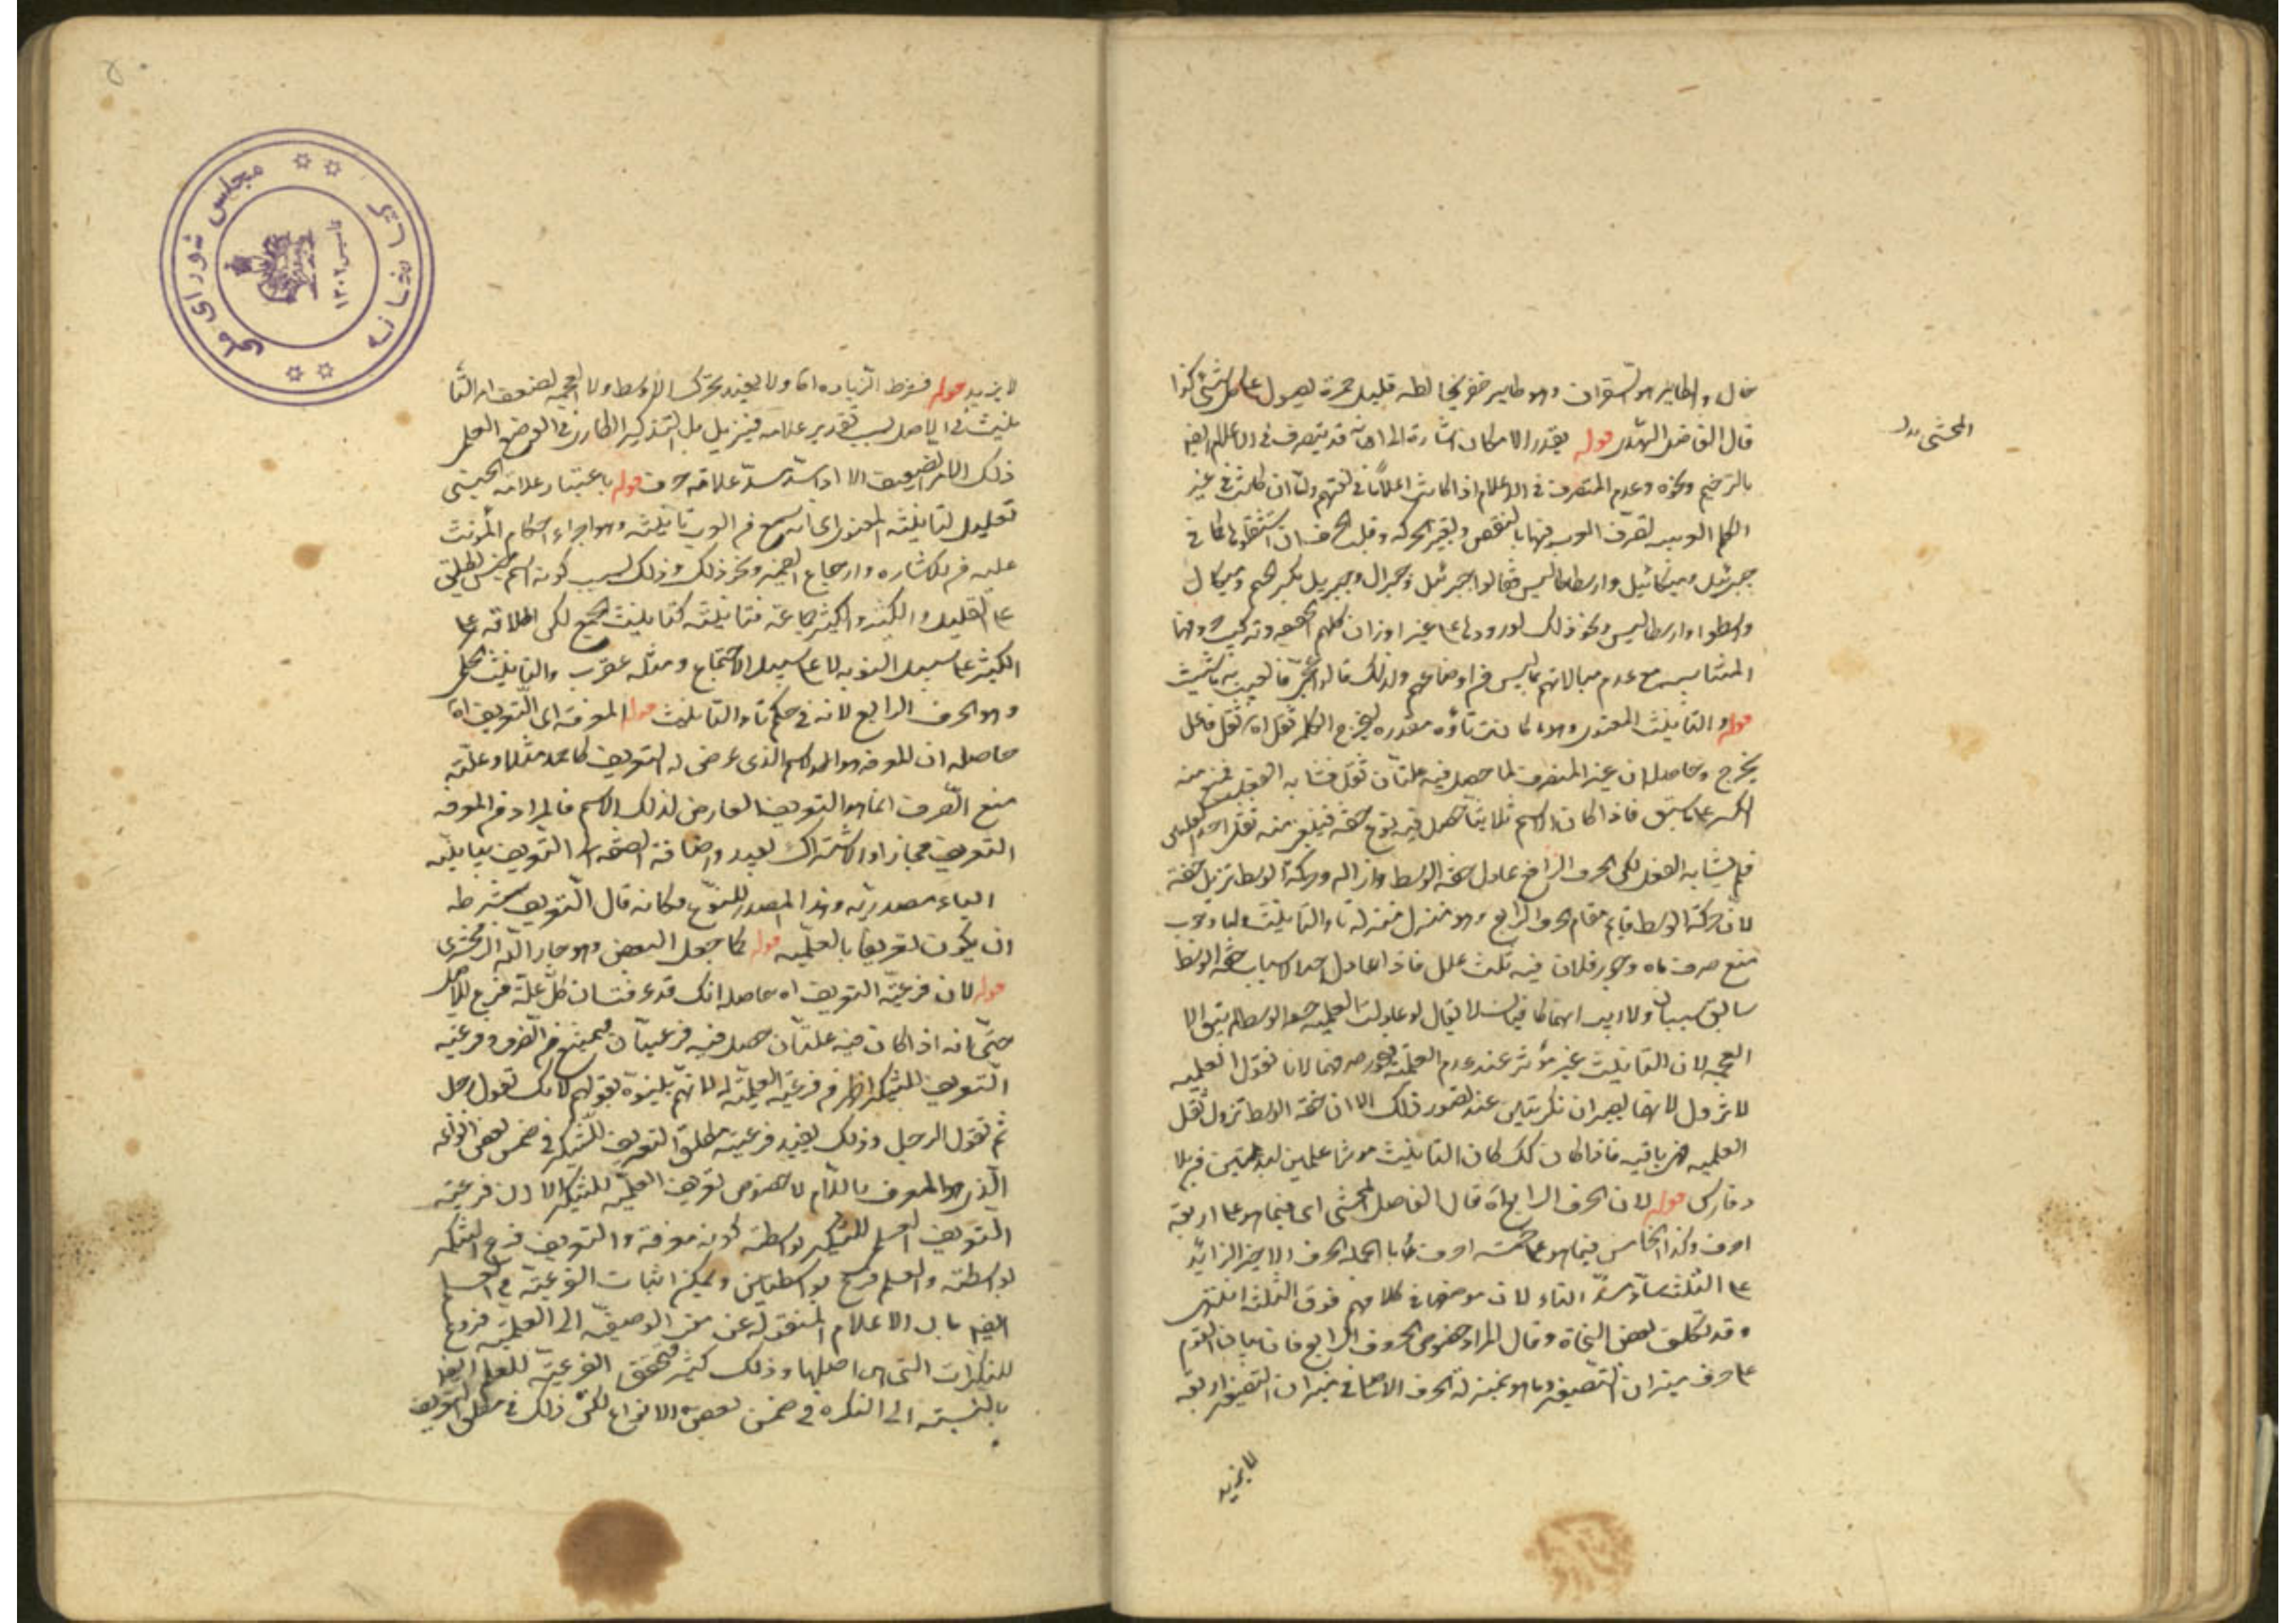 خال والطاير هو الشقراق وهو طاير اخضر يخالطه قليل حمرة يصول على كل شئ كذا
المحشى
قال الفاضل الهندى قوله بقدر الامكان اشارة الى انه قد يتصرف فى الاعلام ايضا
بالترخيم ونحوه وعدم التصرف فى الاعلام اذا كانت اعلاما فى لغتهم ولما كانت فى غير
الكلم العربيه تصرف العرب فيها بالنقص وتغيير الحركه وقلب حرف ان استثقلوا كما فى
جبرئيل وميكائيل وارسطاطاليس فقالوا جبرئيل وجبرال وجبريل بكسر الجيم وميكال
وارسطو وارسطاليس ونحو ذلك لورودها على غير اوزان كلمهم الخفيفه وتركيب حروفها
المتناسب مع عدم مبالاتهم بما ليس من اوضاعهم ولذلك قالوا اعجمى فالعب به ما شئت
قوله والتانيث المعنوى وهو ما كانت تاؤه مقدره ليخرج الكلم ثقل اه ثقل فاعل
يخرج وحاصله ان غير المنصرف لما حصل فيه علتان ثقل فشابه الفعل فمنع منه
الكسر على ما سبق فاذا كان الاسم ثلاثيا حصل فيه نوع خفه فيلغى منه ثقل احد
فلم يشابه الفعل لكن الحرف الرابع عادل خفه الوسط وازاله وحركة الوسط تزيل خفته
لان حركة الوسط قايم مقام الحرف الرابع وهو منزل منزله تاء التانيث واما وجوب
منع صرف ماه وجور فلان فيه ثلث علل فاذا عادل احد الاسباب خفه الوسط
سابق سببان ولا ريب لا يقال لو عادلت العلميه خفه الوسط لم يبق الا
العجمه لان التانيث غير مؤثر عند عدم العلميه فيجوز صرفهما لانا نقول العلميه
لا تزول لانهما يصيران نكرتين عند تصور ذلك الا ان خفه الوسط تزول ثقل
العلميه فهى باقيه فاذا كان كك كان التانيث مؤثرا
قوله لان الحرف الرابع اه قال الفاضل المحشى اى فيما هو على اربعة
احرف وكذا الخامس فيما هو على خمسه احرف وبالجمله الحرف الاخير الزائد
على الثلثه ساد مسد التاء لان موضعها فى كلامهم فوق الثلثه انتهى
وقد تكلف بعض النحاة وقال المراد خصوص الحرف الرابع فان بيان القوم
على حرف ميزان التصغير وما هو بمنزلة الحرف الاصلى فى ميزان التصغير اربعه
لا يزيد
لا يزيد قوله فشرط الزياده اه ولا يفيد تحرك الاوسط ولا العجمه لضعف امر التا
نيث فى الاصل بسبب تقدير علامه فيزيل بل التذكير الطارى فى الوضع العلمى
ذلك الامر الضعيف الا اذا سد مسد علامته حرف قوله باعتبار علامه الجنسى
تعليل لتانيثه المعنوى اى انه سمع من العرب تانيثه وهو اجراء احكام المؤنث
عليه من الاشاره وارجاع الضمير ونحو ذلك وذلك بسبب كونه اسم جنس يطلق
على القليل والكثير والكثير جماعه فتانيثه كتانيث الجمع لكن اطلاقه على
الكثير على سبيل النوبه لا على سبيل الاجتماع ومثله عقرب والتانيث الحكمى
وهو الحرف الرابع لانه فى حكم تاء التانيث قوله المعرفه اى التعريف اه
حاصله ان المعرفه هو الاسم الذى عرض له التعريف كاحمد مثلا وعلة
منع الصرف انما هو التعريف العارض لذلك الاسم فالمراد من المعرفه
التعريف مجازا والاشتراك بعيد واضافة الصفة الى التعريف بيانيه
الياء مصدريه وهذا المصدر للنوع فكانه قال التعريف شرطه
ان يكون تعريفا بالعلميه قوله كما جعل البعض وهو جار الله الزمخشرى
قوله لان فرعية التعريف اه حاصله انك قد عرفت ان كل علة فرع للاصل
حتى انه اذا كان فيه علتان حصل فيه فرعيتان فيمتنع من الصرف وفرعية
التعريف للتنكير اظهر من فرعية العلميه له لانهم بقولهم لانك تقول رجل
ثم تقول الرجل وذلك يفيد فرعية مطلق التعريف للتنكير فى ضمن بعض انواعه
الذى هو المعرف باللام لا خصوص تعريف العلميه للتنكير لان فرعية
التعريف العلمى للتنكير بواسطة كونه معرفة والتعريف فرع التنكير
بواسطة والعلم فرع بواسطتين ويمكن اثبات الفرعية فى العلم
ايضا بان الاعلام المنقوله عن معنى الوصفيه الى العلميه فروع
للنكرات التى هى اصلها وذلك كثير فتحقق الفرعية للعلم ايضا
بالنسبة الى النكره فى ضمن بعض الانواع لكن ذلك فى مطلق التعريف
كتابخانه مجلس شوراى ملى
تاسيس ١٣٠٢